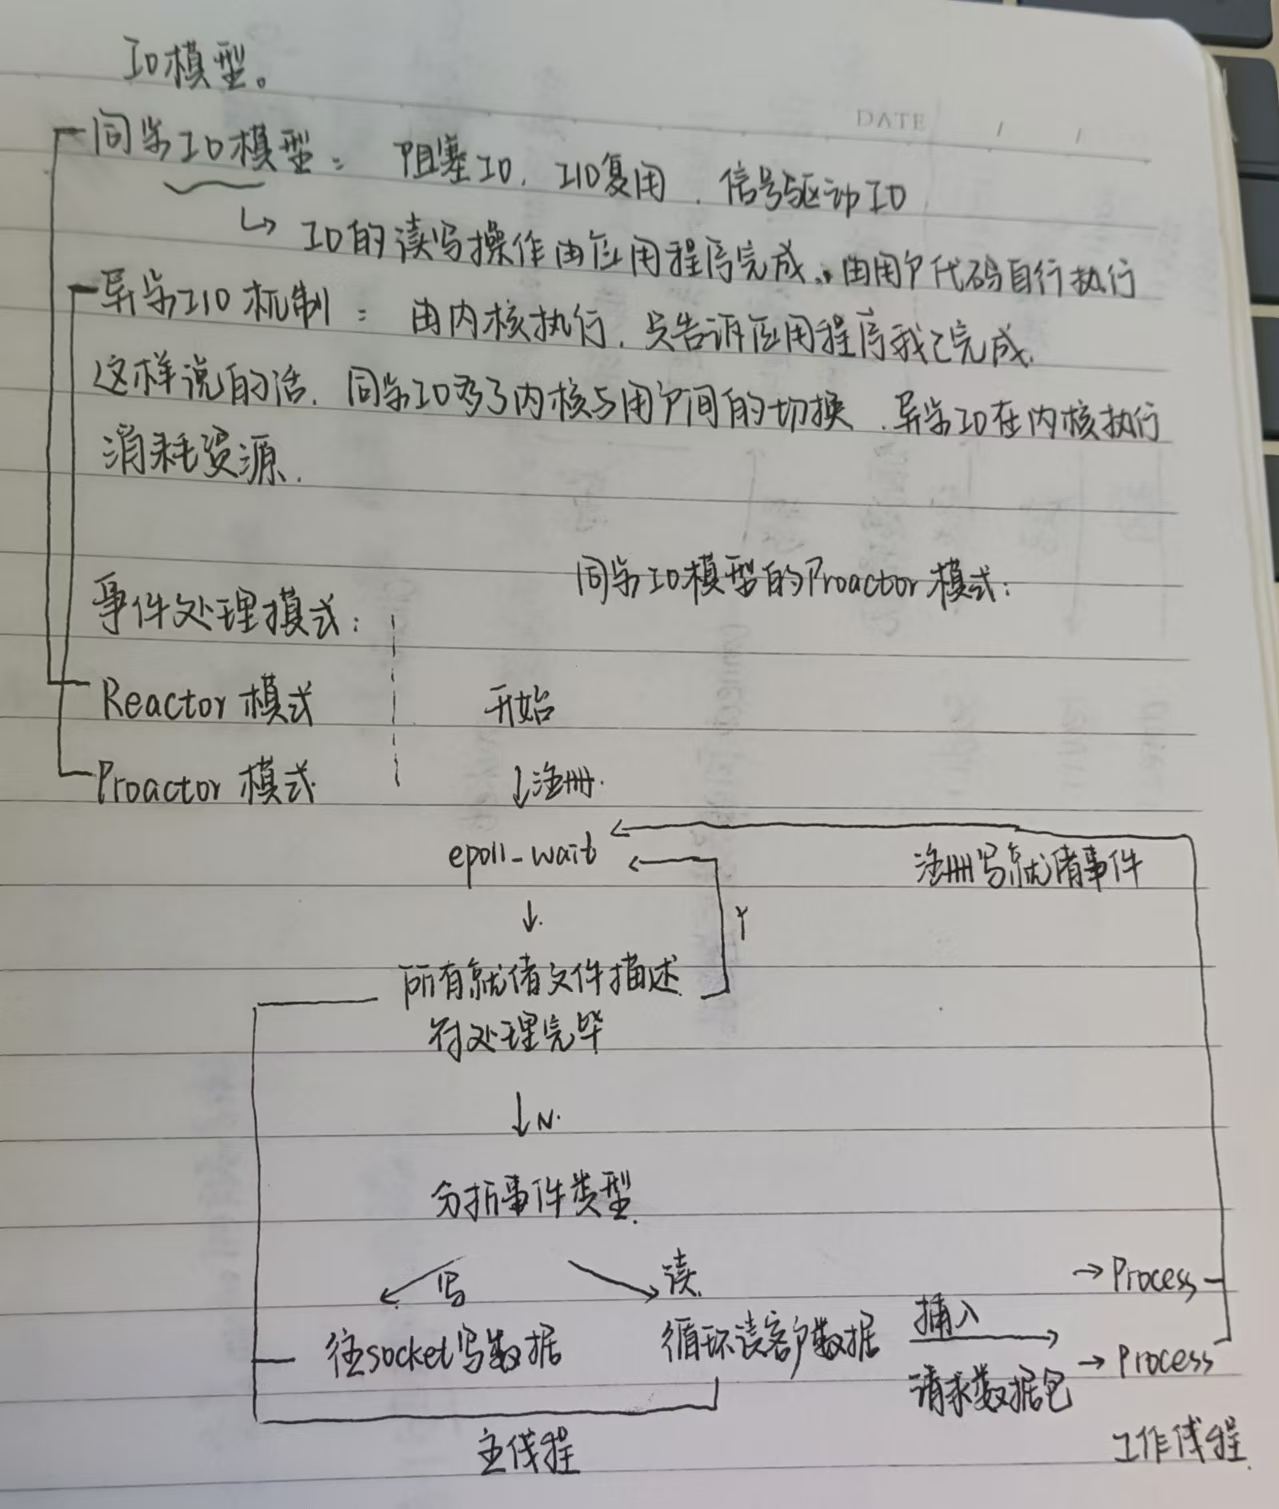 IO模型。
DATE / /
同步IO模型: 阻塞IO, I/O复用, 信号驱动IO
↳ IO的读写操作由应用程序完成, 由用户代码自行执行
异步I/O机制: 由内核执行, 只告诉应用程序我已完成.
这样说的话, 同步IO多了内核与用户间的切换, 异步IO在内核执行
消耗资源.
同步IO模型的Proactor模式:
事件处理模式:
Reactor 模式
Proactor 模式
开始
↓注册.
epoll-wait
注册写就绪事件
↓
Y
所有就绪文件描述
符处理完毕
↓N.
分析事件类型.
写
读.
往socket写数据
循环读客户数据
插入
请求数据包
→Process
→Process
主线程
工作线程.